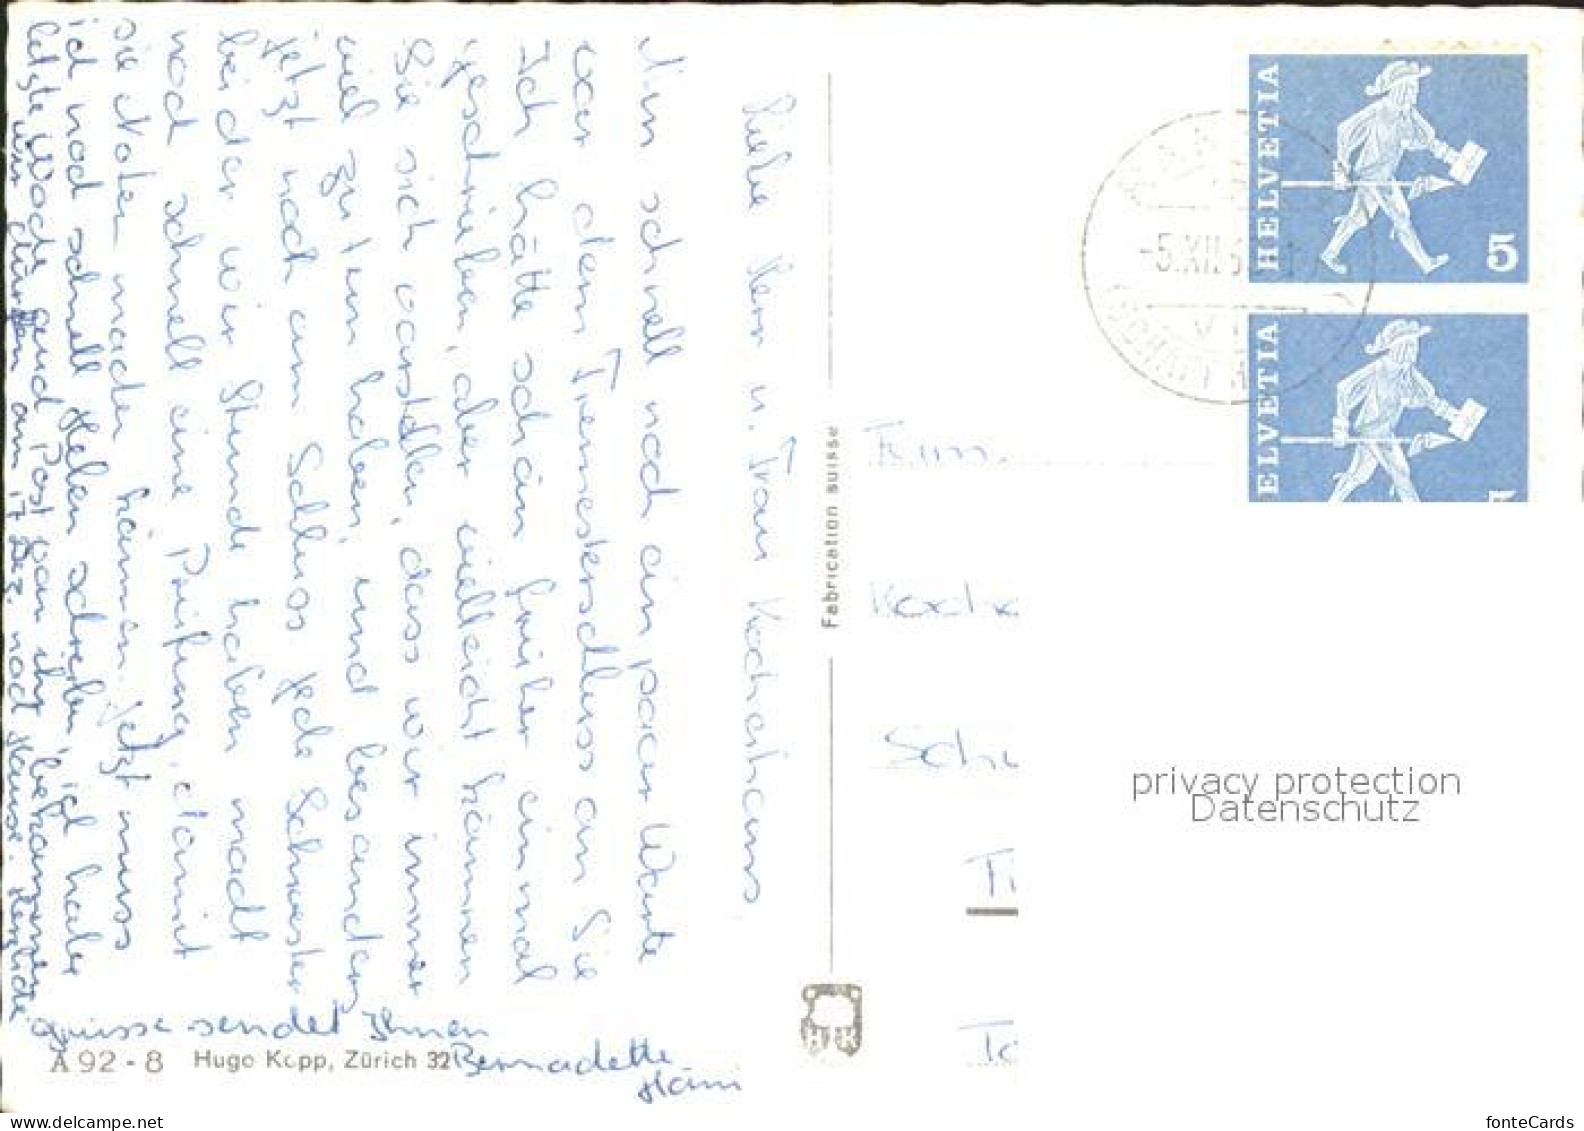 Liebe Herr u. Frau Kochenhans,
Nun schnell noch ein paar Worte
vor dem Trimesterschluss an Sie
Ich hätte schon früher einmal
geschrieben, aber vielleicht können
Sie sich vorstellen, dass wir immer
viel zu tun haben, und besonders
jetzt noch am Schluss jede Schwester
bei der wir Stunde haben macht
noch schnell eine Prüfung, damit
sie Noten machen können. Jetzt muss
ich noch schnell Helen schreiben, ich habe
letzte Woche grad Post von ihr bekommen
wir dürfen am 17 Dez. nach Hause. Herzliche
Grüsse sendet Ihnen
Bernadette
A 92 - 8 Hugo Kopp, Zürich 32
Fabrication suisse
HELVETIA
5
-5.XII.6
VI
HELVETIA
Fam.
Koche
Schu
privacy protection
Datenschutz
www.delcampe.net
fonteCards